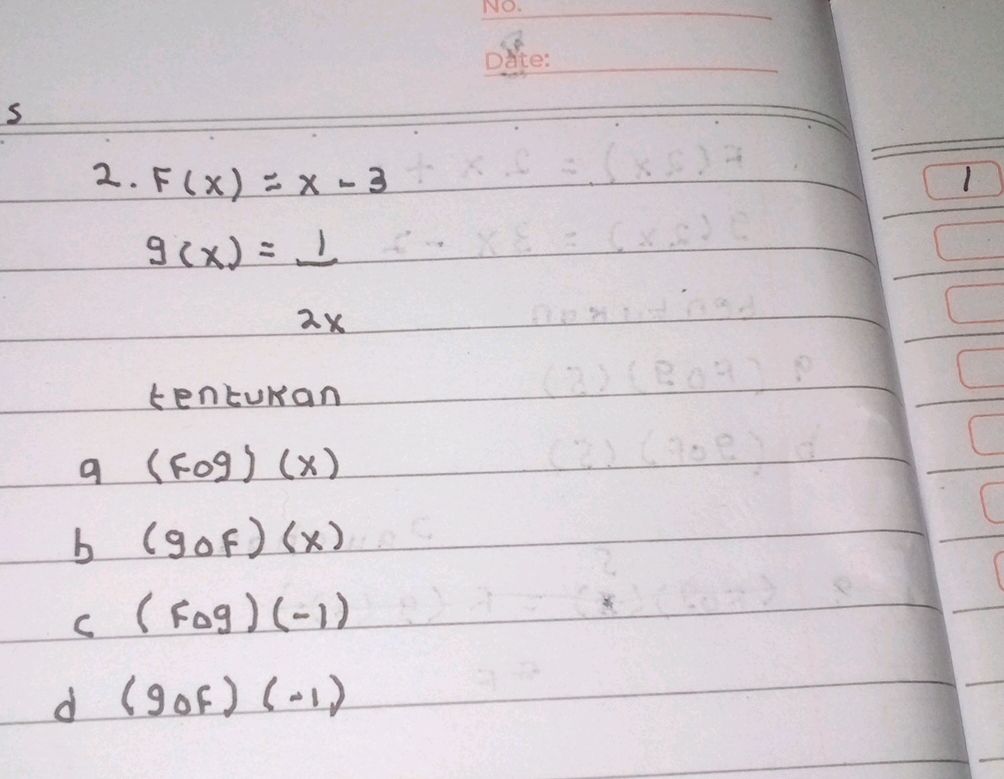 No.
Date:
s
2. F(x) = x - 3
g(x) = 1
2x
tentukan
a (Fog) (x)
b (goF) (x)
c (Fog) (-1)
d (goF) (-1)
1